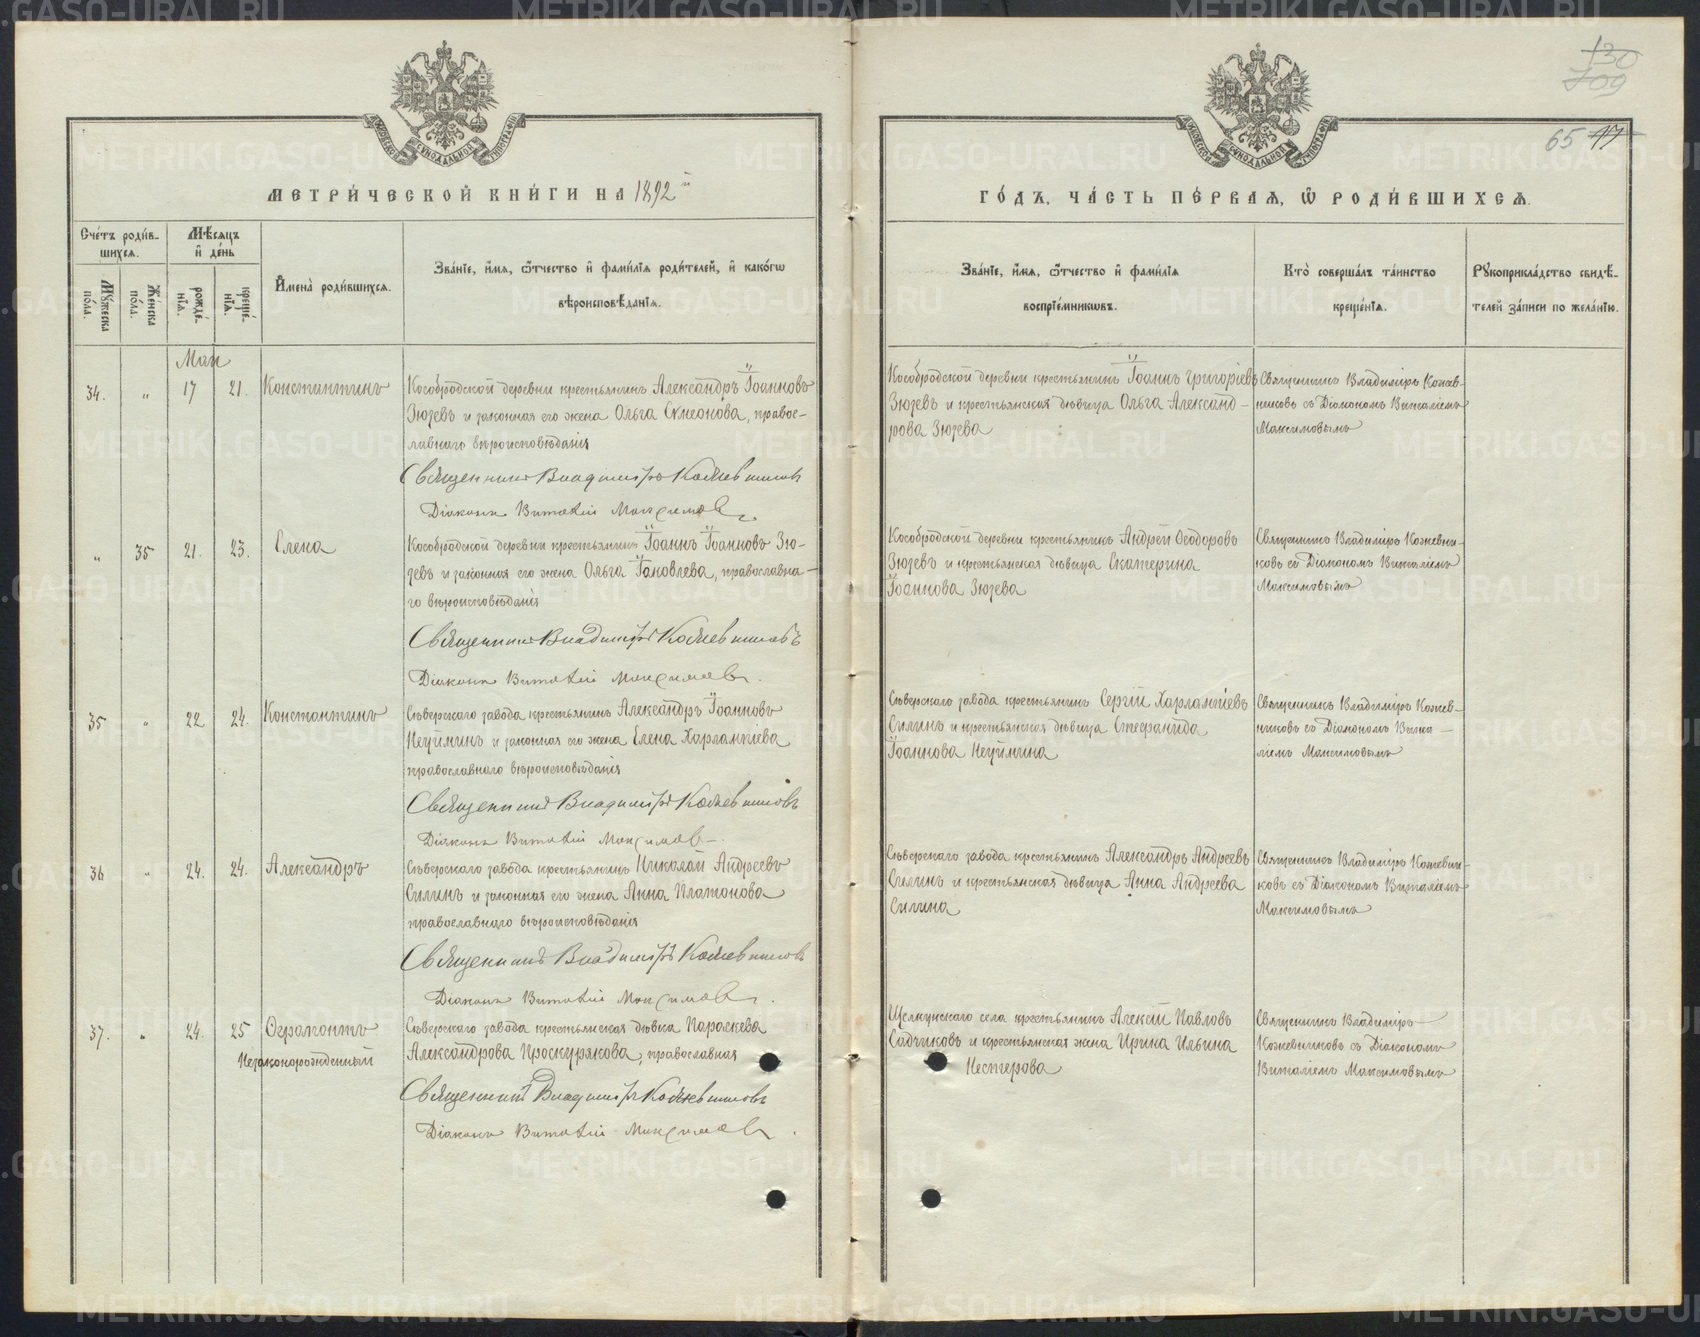 130
109
65 17
МЕТРИ́ЧЕСКОЙ КНИ́ГИ НА 1892й
Сче́тъ роди́в-
шихся.
Мѣсяцъ
и де́нь
Му́жеска
по́ла.
Же́нска
по́ла.
рожде́-
нїя.
креще́-
нїя.
И҆мена̀ роди́вшихся.
Зва́нїе, и҆́мя, ѻ҆́тчество и҆ фами́лїя роди́телей, и҆ како́гѡ
вѣроисповѣ́данїя.
Май
34. " 17 21. Константинъ
Кособродской деревни крестьянинъ Александръ Іоанновъ
Зюзевъ и законная его жена Ольга Симеонова, правос-
лавнаго вѣроисповѣданія
Священникъ Владиміръ Кожевниковъ
Діаконъ Виталій Максимовъ.
" 35 21. 23. Елена
Кособродской деревни крестьянинъ Іоаннъ Іоанновъ Зю-
зевъ и законная его жена Ольга Іаковлева, православна-
го вѣроисповѣданія
Священникъ Владиміръ Кожевниковъ
Діаконъ Виталій Максимовъ.
35 " 22 24. Константинъ
Сѣверскаго завода крестьянинъ Александръ Іоанновъ
Неуйминъ и законная его жена Елена Харлампіева
православнаго вѣроисповѣданія
Священникъ Владиміръ Кожевниковъ
Діаконъ Виталій Максимовъ.
36 " 24. 24. Александръ
Сѣверскаго завода крестьянинъ Николай Андреевъ
Силинъ и законная его жена Анна Платонова
православнаго вѣроисповѣданія
Священникъ Владиміръ Кожевниковъ
Діаконъ Виталій Максимовъ.
37. " 24. 25 Ферапонтъ
Незаконорожденный
Сѣверскаго завода крестьянская дѣвка Параскева
Александрова Проскурякова, православная
Священникъ Владиміръ Кожевниковъ
Діаконъ Виталій Максимовъ.
ГО́ДЪ, ЧА́СТЬ ПЕ́РВАЯ, Ѡ҆ РОДИ́ВШИХСЯ.
Зва́нїе, и҆́мя, ѻ҆́тчество и҆ фами́лїя
воспрїе́мникѡвъ.
Кто̀ соверша́лъ та́инство
креще́нїя.
Рꙋкоприкла́дство свидѣ́-
телей за́писи по жела́нїю.
Кособродской деревни крестьянинъ Іоаннъ Григоріевъ
Зюзевъ и крестьянская дѣвица Ольга Александ-
рова Зюзева
Священникъ Владиміръ Кожев-
никовъ съ Діакономъ Виталіемъ
Максимовымъ
Кособродской деревни крестьянинъ Андрей Ѳеодоровъ
Зюзевъ и крестьянская дѣвица Екатерина
Іоаннова Зюзева
Священникъ Владиміръ Кожевни-
ковъ съ Діакономъ Виталіемъ
Максимовымъ
Сѣверскаго завода крестьянинъ Сергій Харлампіевъ
Силинъ и крестьянская дѣвица Стефанида
Іоаннова Неуймина
Священникъ Владиміръ Кожев-
никовъ съ Діакономъ Вита-
ліемъ Максимовымъ
Сѣверскаго завода крестьянинъ Александръ Андреевъ
Силинъ и крестьянская дѣвица Анна Андреева
Силина
Священникъ Владиміръ Кожевни-
ковъ съ Діакономъ Виталіемъ
Максимовымъ
Щелкунскаго села крестьянинъ Алексій Павловъ
Садчиковъ и крестьянская жена Ирина Ильина
Нестерова
Священникъ Владиміръ
Кожевниковъ съ Діакономъ
Виталіемъ Максимовымъ
METRIKI.GASO-URAL.RU